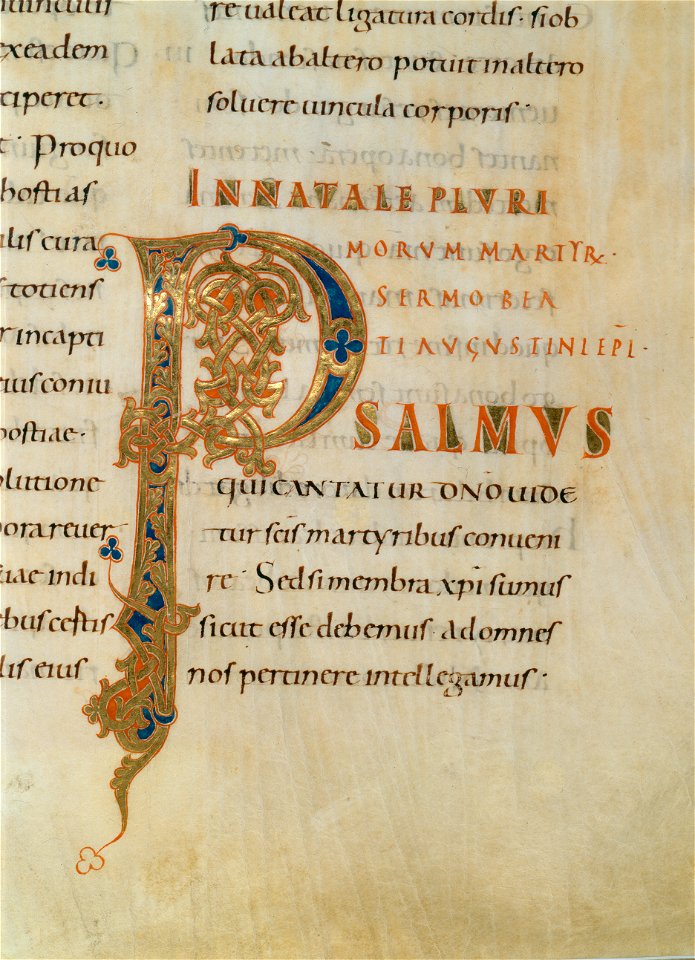 exeadem
tiperet ·
Proquo
hostias
ilis cura
s totiens
r incapti
eius coniu
hostiae ·
olutione
pora reuer
tiae indi
ebus cęstis
lis eius
re ualeat ligatura cordis · si ob
lata ab altero potuit in altero
soluere uincula corporis ·
IN NATALE PLVRI
MORVM MARTYR ·
SERMO BEA
TI AUGUSTINI EP̄I ·
PSALMVS
QUI CANTATUR DNO UIDE
tur scīs martyribus conueni
re · Sed si membra xp̄i sumus
sicut esse debemus · ad omnes
nos pertinere intellegamus ·